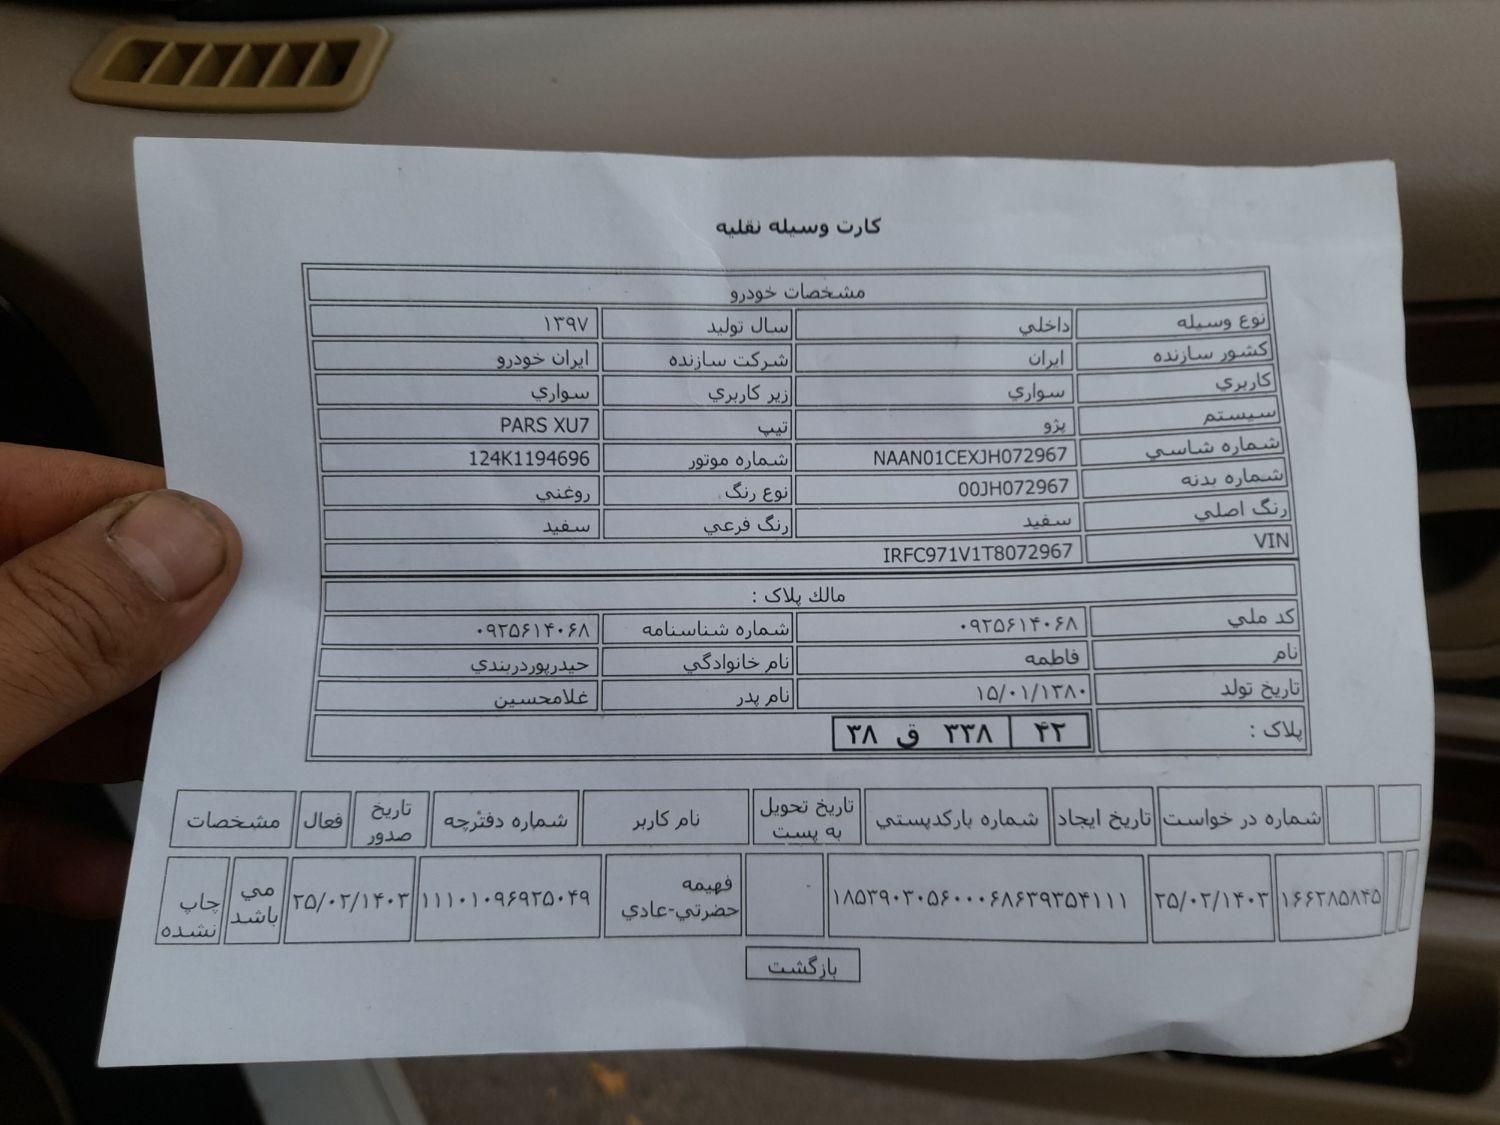 کارت وسیله نقلیه
مشخصات خودرو
نوع وسیله داخلي سال تولید ۱۳۹۷
کشور سازنده ایران شرکت سازنده ایران خودرو
کاربري سواري زیر کاربري سواري
سیستم پژو تیپ PARS XU7
شماره شاسي NAAN01CEXJH072967 شماره موتور 124K1194696
شماره بدنه 00JH072967 نوع رنگ روغني
رنگ اصلي سفید رنگ فرعي سفید
VIN IRFC971V1T8072967
مالك پلاک :
کد ملي ۰۹۲۵۶۱۴۰۶۸ شماره شناسنامه ۰۹۲۵۶۱۴۰۶۸
نام فاطمه نام خانوادگي حیدرپوردربندي
تاریخ تولد ۱۵/۰۱/۱۳۸۰ نام پدر غلامحسین
پلاک : ۴۲ ۳۳۸ ق ۳۸
شماره در خواست تاریخ ایجاد شماره بارکدپستي تاریخ تحویل به پست نام کاربر شماره دفترچه تاریخ صدور فعال مشخصات
۱۶۶۲۸۵۸۴۵ ۲۵/۰۲/۱۴۰۳ ۱۸۵۳۹۰۳۰۵۶۰۰۰۶۸۶۳۹۳۵۴۱۱۱ فهیمه حضرتي-عادي ۱۱۱۰۱۰۹۶۹۲۵۰۴۹ ۲۵/۰۲/۱۴۰۳ مي باشد چاپ نشده
بازگشت